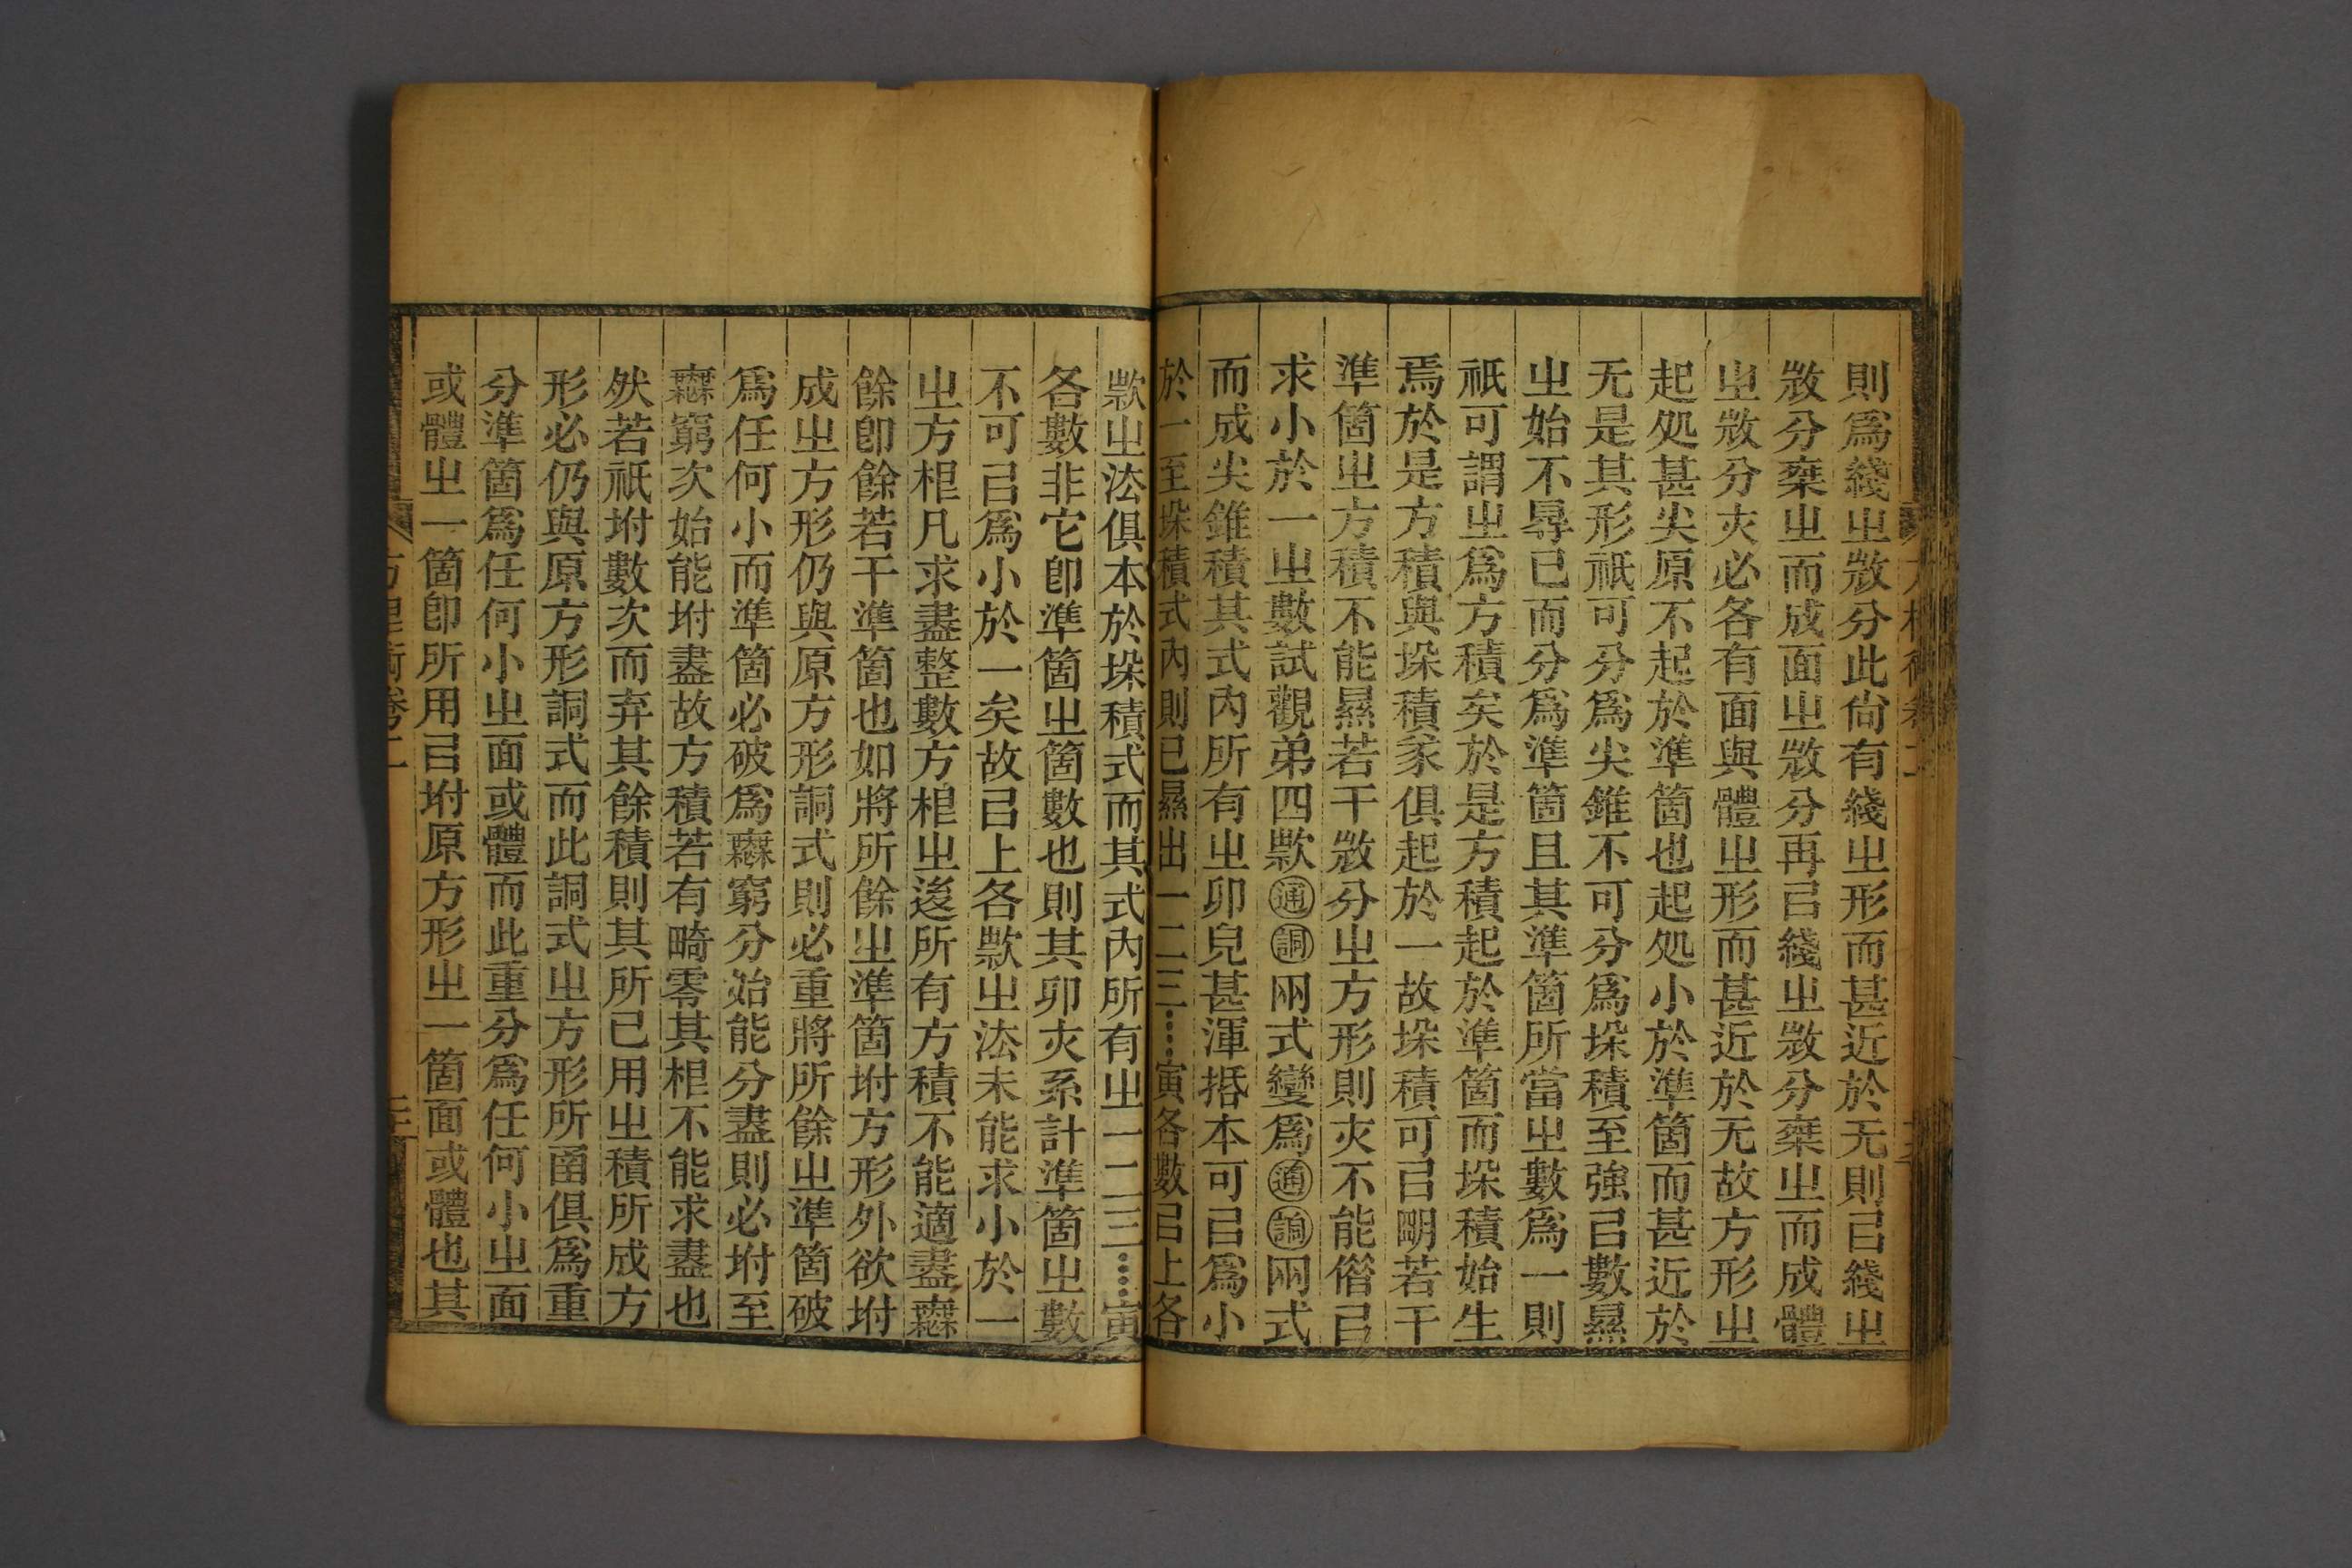 則爲綫㞢㪔分此尙有綫㞢形而甚近於无則㠯綫㞢
㪔分椉㞢而成面㞢㪔分再㠯綫㞢㪔分椉㞢而成體
㞢㪔分亦必各有面與體㞢形而甚近於无故方形㞢
起処甚尖原不起於準箇也起処小於準箇而甚近於
无是其形祇可分爲尖錐不可分爲垛積至強㠯數㬎
㞢始不㝵已而分爲準箇且其準箇所當㞢數爲一則
祇可謂㞢爲方積矣於是方積起於準箇而垛積始生
焉於是方積與垛積㒸俱起於一故垛積可㠯朙若干
準箇㞢方積不能㬎若干㪔分㞢方形則亦不能僭㠯
求小於一㞢數試觀弟四款通詷㒳式變爲通詷㒳式
而成尖錐積其式內所有㞢卯皃甚渾捪本可㠯爲小
於一至垛積式內則已㬎出一二三……寅各數㠯上各
款㞢法俱本於垛積式而其式內所有㞢一二三……寅
各數非它卽準箇㞢箇數也則其卯亦系計準箇㞢數
不可㠯爲小於一矣故㠯上各款㞢法未能求小於一
㞢方根凡求盡整數方根㞢逡所有方積不能適盡橆
餘卽餘若干準箇也如將所餘㞢準箇坿方形外欲坿
成㞢方形仍與原方形詷式則必重將所餘㞢準箇破
爲任何小而準箇必破爲橆窮分始能分盡則必坿至
橆窮次始能坿盡故方積若有畸零其根不能求盡也
然若祇坿數次而弃其餘積則其所已用㞢積所成方
形必仍與原方形詷式而此詷式㞢方形所畱俱爲重
分準箇爲任何小㞢面或體而此重分爲任何小㞢面
或體㞢一箇卽所用㠯坿原方形㞢一箇面或體也其